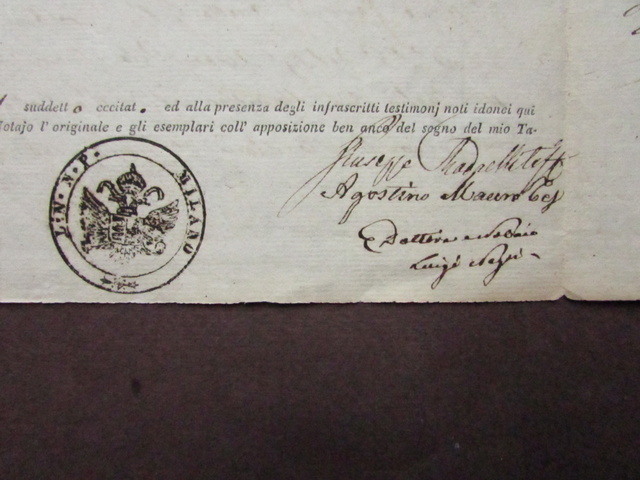 suddetto eccitato ed alla presenza degli infrascritti testimonj noti idonei qui
Notajo l' originale e gli esemplari coll' apposizione ben anco del sogno del mio Ta-
Giuseppe
Agostino Mauro
L. N. N. P. MILANO
Dottore e Nodaio
Luigi